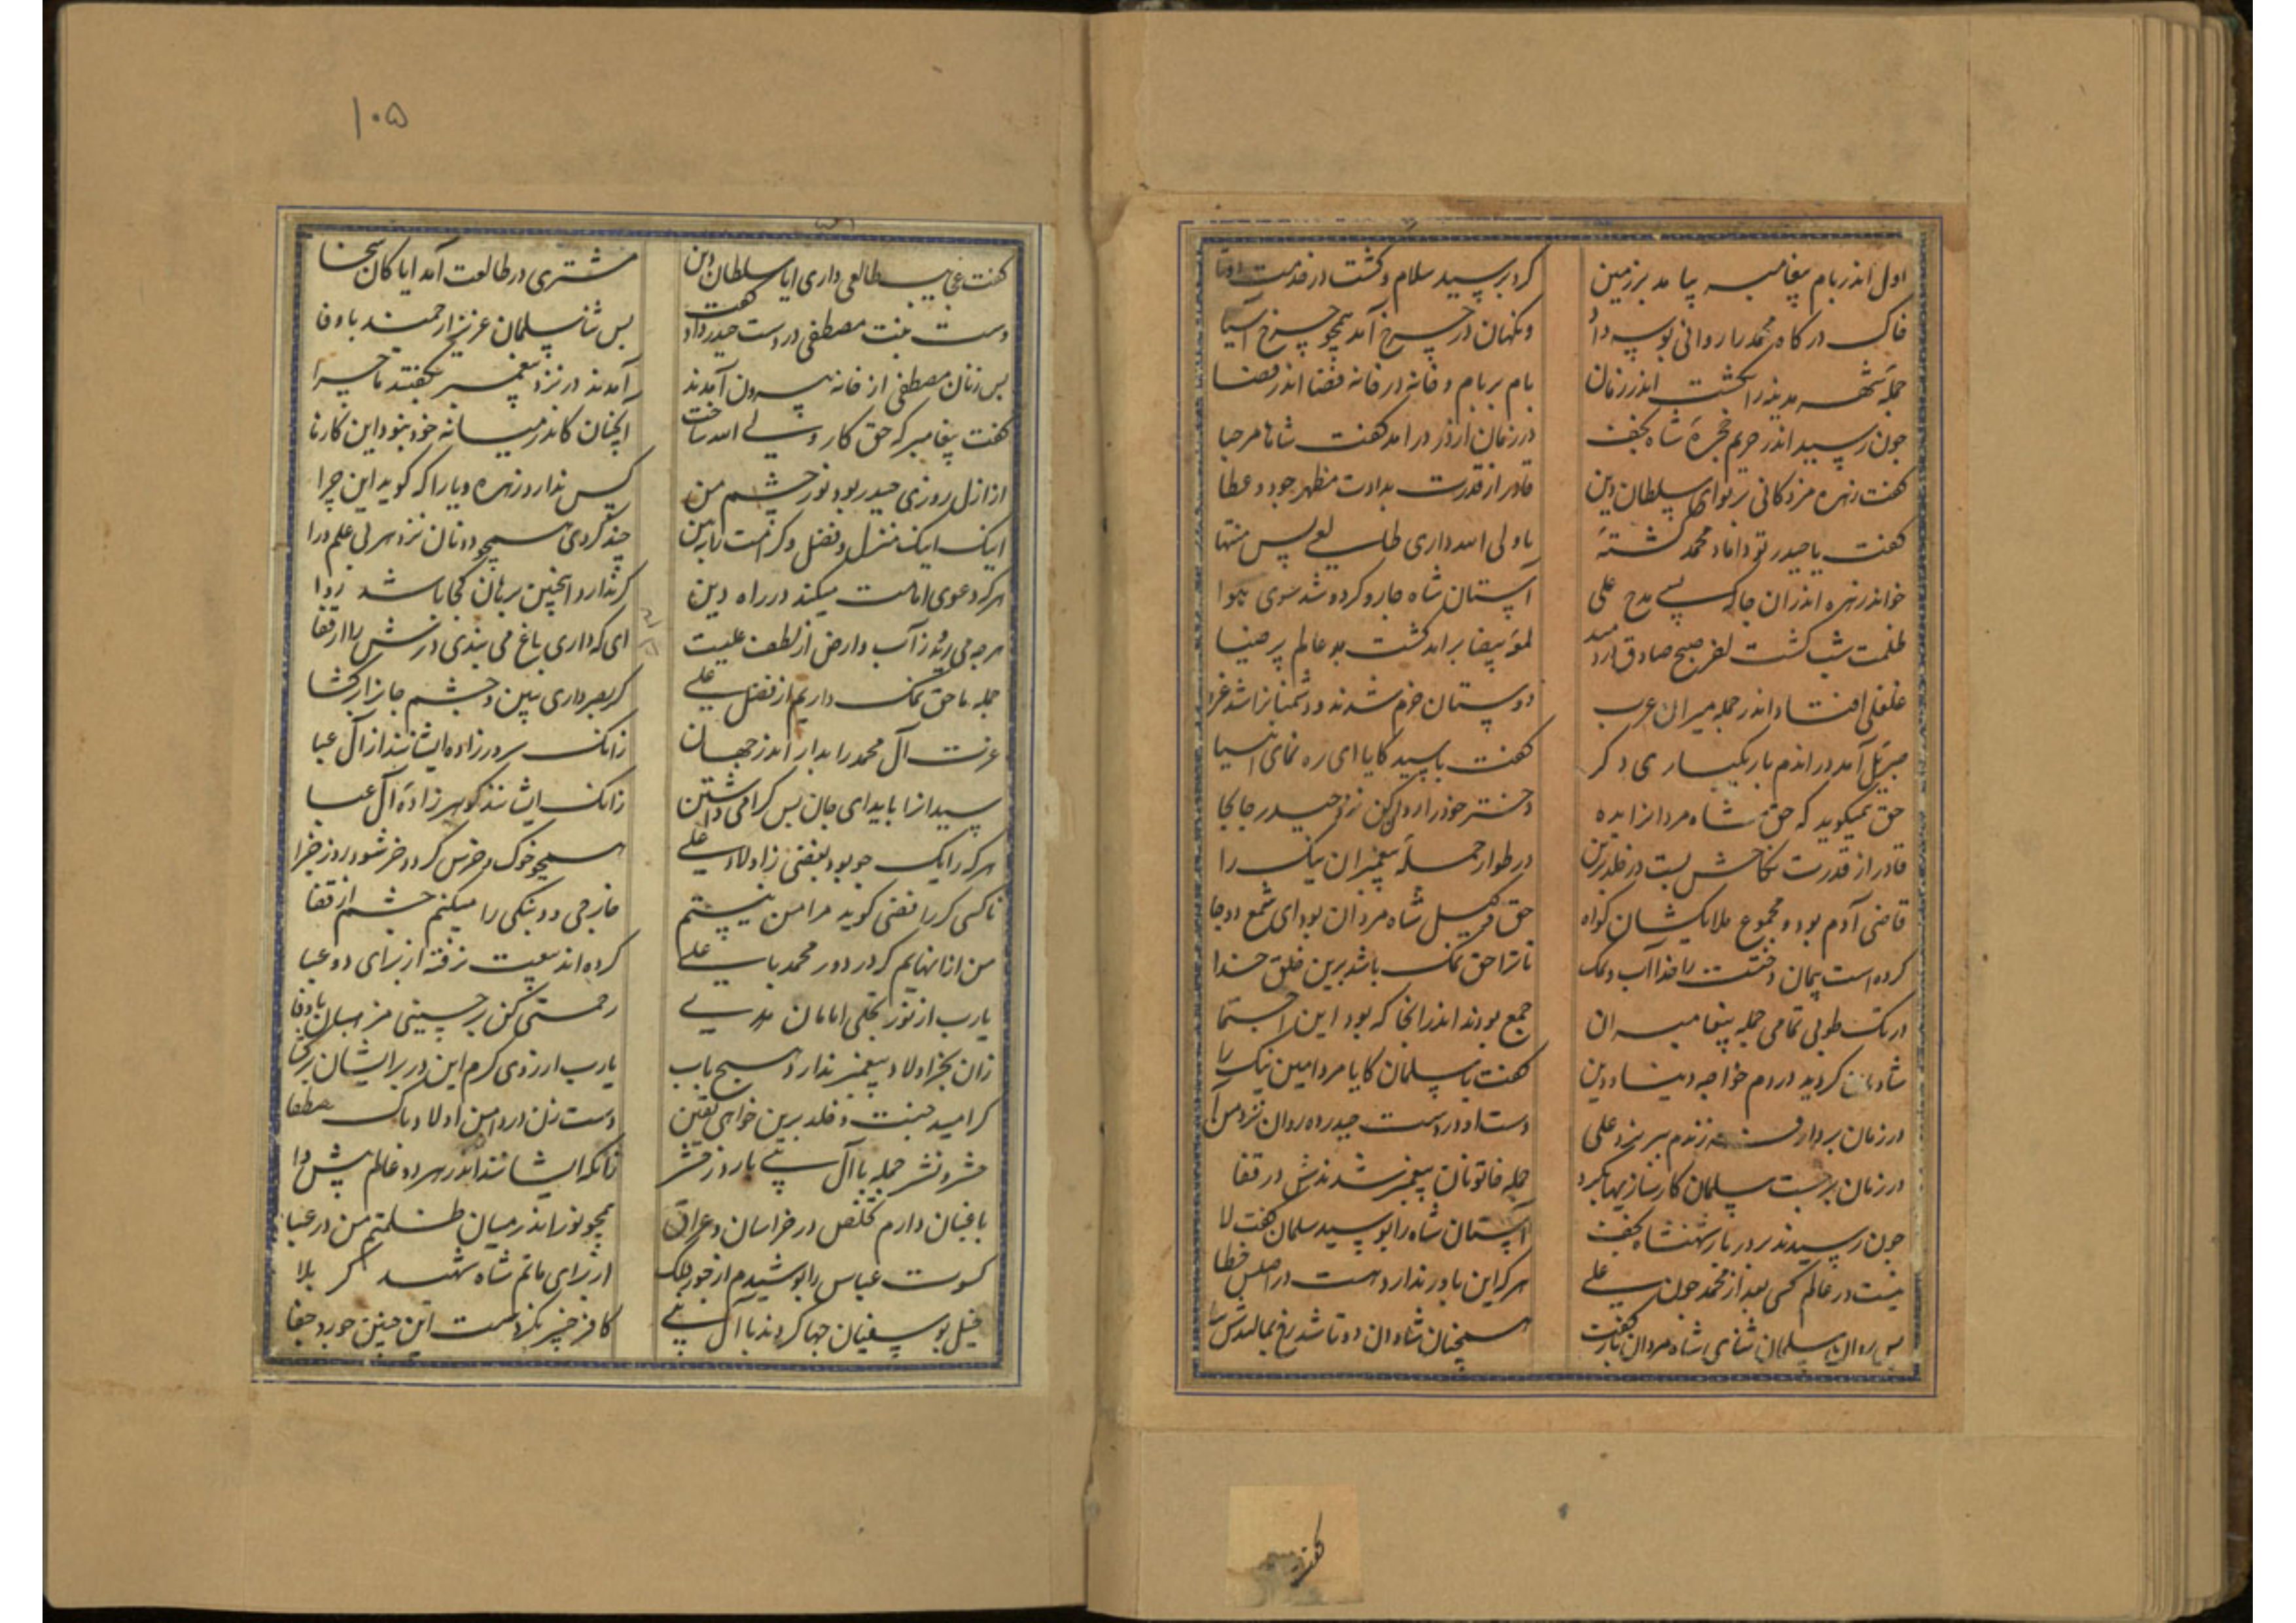 اول اندر بام پیغامبر بیامد بر زمین
کرد بر سید سلام و کشت در خدمت دوتا
خاک درکاه محمد را روانی بوسه داد
ونکهان در چرخ آمد همچو چرخ آسیا
جمله شهر مدینه را بکشت اندر زمان
بام بر بام و خانه در خانه فضا اندر فضا
چون رسید اندر حریم حجره شاه نجف
در زمان از در درآمد کفت شاها مرحبا
کفت زهره مژدکانی بر تو ای سلطان دین
قادر از قدرت بدادت مظهر جود و عطا
کفت یا حیدر تو داماد محمد کشته
یا ولی الله داری طالعی بس منتها
خواند زهره اندران جا که بسی مدح علی
آستان شاه جارو کرد و شد سوی هوا
ظلمت شب کشت صبح صادق دمید
بیضا برآمد کشت عالم پر ضیا
غلغلی افتاد اندر جمله میران عرب
دوستان خرم شدند و دشمنانرا شد عزا
جبرئیل آمد در اندم بار یکباری دکر
کفت با سید کایا ای ره نمای انبیا
حق همیکوید که حق شاه مردانرا بده
دختر خود را روان کن نزد حیدر جابجا
قادر از قدرت نکاحش بست در خلد برین
در طواز جمله پیغمبران نیک را
قاضی آدم بود و مجموع ملایکشان کواه
حق وکیل شاه مردان بود ای شمع دوجا
کرده است پیمان دخترت را خدا آب و نمک
تا ترا حق نمک باشد برین خلق خدا
در تک طوبی تمامی جمله پیغامبران
جمع بودند اندر انجا که بود این اجتما
شادمان کردید در دم خواجه دنیا و دین
کفت با سلمان کایا مرد امین نیک را
در زمان بردار فرزندم ببر نزد علی
دست او در دست حیدر ده روان نزد من آ
در زمان برجست سلمان کارسازیها بکرد
جمله خاتونان پیغمبر شدندش در قفا
چون رسیدند بر در بار شهنشاه نجف
آستان شاه را بوسید سلمان کفت لا
نیست در عالم کسی بعد از محمد چون علی
هر که این باور ندارد هست در اصلش خطا
پس روان سلمان ثنای شاه مردان باز کفت
همچنان شادان دوتا شد رخ بمالیدش
کفت
۱۰۵
کفت عجایب طالعی داری ایا سلطان دین
مشتری در طالعت آمد ایا کان سخا
دست بنت مصطفی در دست حیدر داد کفت
بس شا سلمان عزیز ارجمند باوفا
بس زنان مصطفی از خانه بیرون آمدند
آمدند در نزد پیغمبر بکفتند ماجرا
کفت پیغامبر که حق کار ولی الله ساخت
آنچنان کاندر میانه خود نبود این کار ما
از ازل روزی حیدر بود نور چشم من
کس ندارد زهره و یارا که کوید این چرا
اینک اینک منزل و فضل و کرامت باببین
چند کردی همچو دونان نزد هر بی علم درا
هر که دعوی امامت میکند در راه دین
کر ندارد اینچنین برهان کجا باشد روا
هرچه می روید ز آب و ارض از لطف علیست
ای که داری باغ می بندی درش را از قفا
جمله ما حق نمک داریم از فضل علی
کر بصر داری ببین و چشم جانرا برکشا
عزت آل محمد را بدار اندر جهان
زانک سرور زاده ایشانند از آل عبا
سیدانرا باید ای جان بس کرامی داشتن
زانک ایشانند کوهر زاده آل عبا
هر که را یک جو بود بغضی ز اولاد علی
همچو خوک و خرس کردد خر شود روز جزا
ناکسی کر رافضی کوید مرا من نیستم
خارجی دو بنکی را میکنم چشم از قفا
من از انهایم که در دور محمد با علی
کرده اند بیعت نرفته از برای دو عبا
یارب از نور تجلی امامان هدی
رحمتی کن بر حسینی مذهبان باوفا
زان بجز اولاد پیغمبر ندارد هیچ باب
یارب از روی کرم این در بر ایشان برکشا
کر امید جنت و خلد برین خواهی یقین
دست زن در دامن اولاد پاک مصطفا
حشر و نشر جمله با آل نبی باد روز حشر
زانکه ایشانند اندر هر دو عالم پیشوا
باغبان دارم تخلص در خراسان و عراق
همچو نور اندر میان ظلمتم من در عبا
کسوت عباس را بوشیدم از جور فلک
از برای ماتم شاه شهید کربلا
خیل بو سفیان جها کردند با آل نبی
کافر خیبر نکردست این چنین جور و جفا